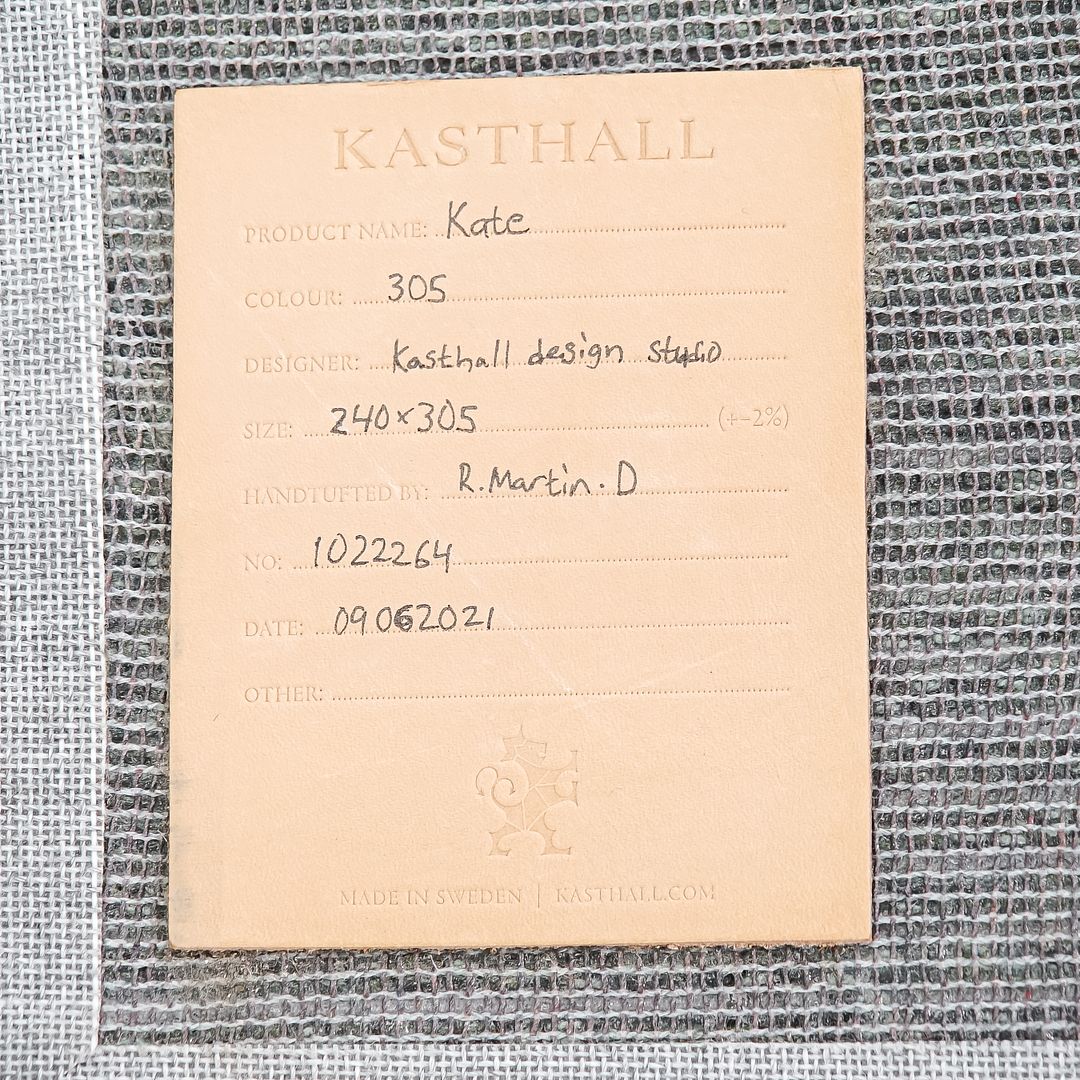 KASTHALL
PRODUCT NAME: Kate
COLOUR: 305
DESIGNER: Kasthall design studio
SIZE: 240×305 (+-2%)
HANDTUFTED BY: R. Martin. D
NO: 1022264
DATE: 09062021
OTHER:
MADE IN SWEDEN | KASTHALL.COM